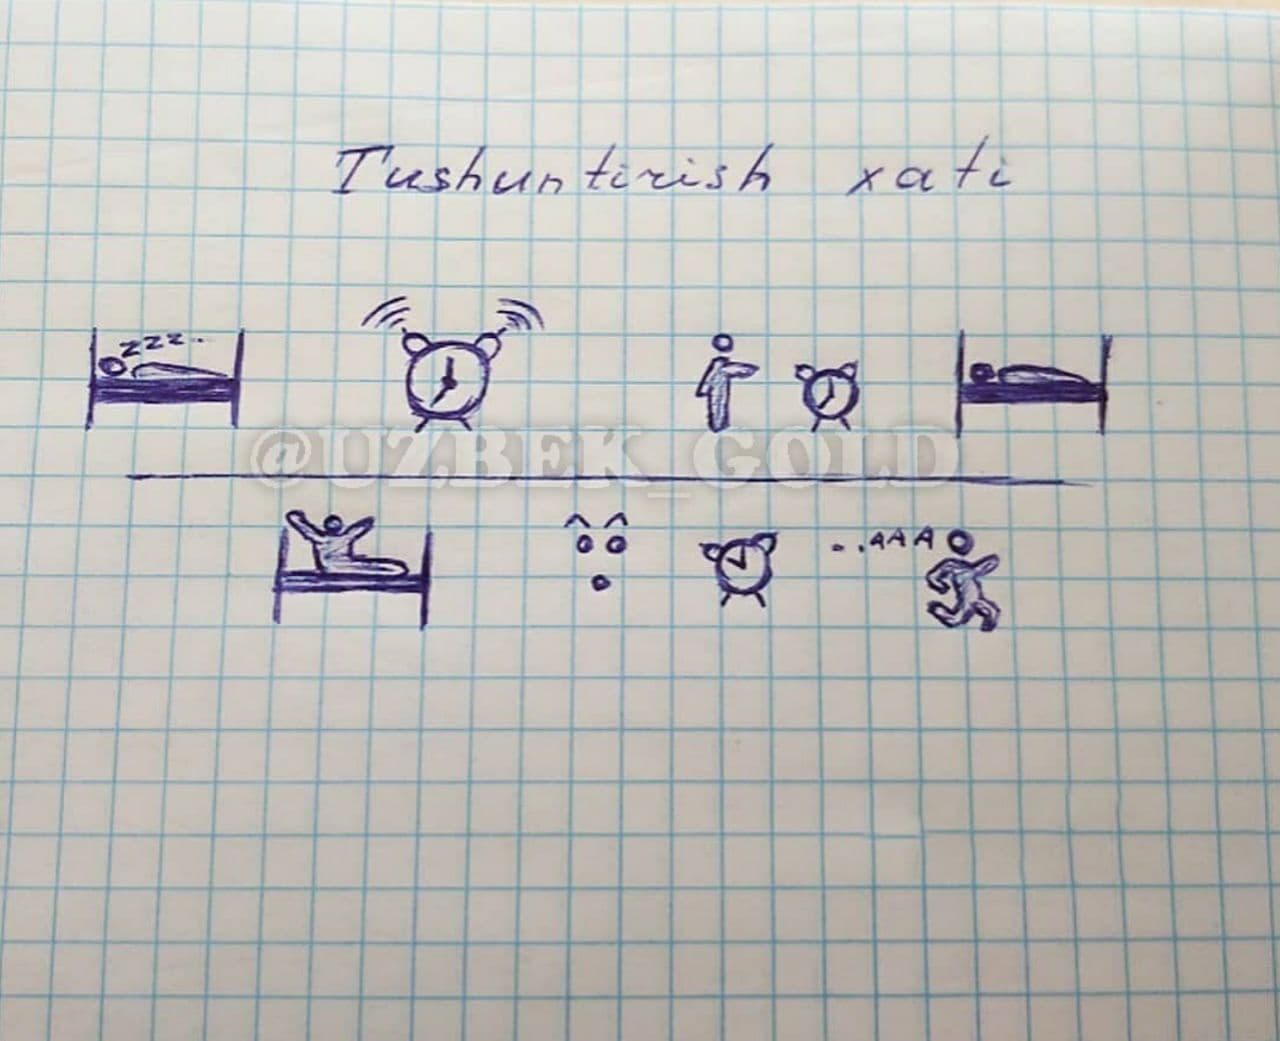 Tushuntirish xati
zzz..
@UZBEK_GOLD
...AAA